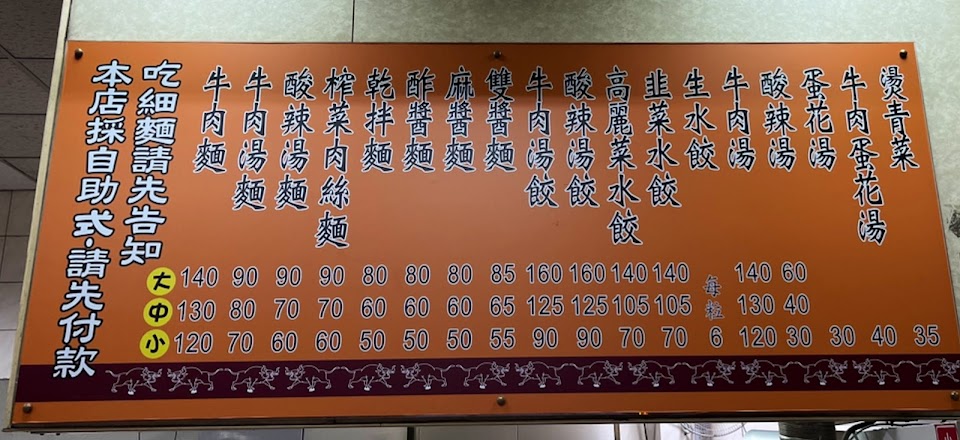 本店採自助式·請先付款
吃細麵請先告知
牛肉麵
牛肉湯麵
酸辣湯麵
榨菜肉絲麵
乾拌麵
酢醬麵
麻醬麵
雙醬麵
牛肉湯餃
酸辣湯餃
高麗菜水餃
韭菜水餃
生水餃
牛肉湯
酸辣湯
蛋花湯
牛肉蛋花湯
燙青菜
大 140 90 90 90 80 80 80 85 160 160 140 140 140 60
中 130 80 70 70 60 60 60 65 125 125 105 105 每粒 130 40
小 120 70 60 60 50 50 50 55 90 90 70 70 6 120 30 30 40 35